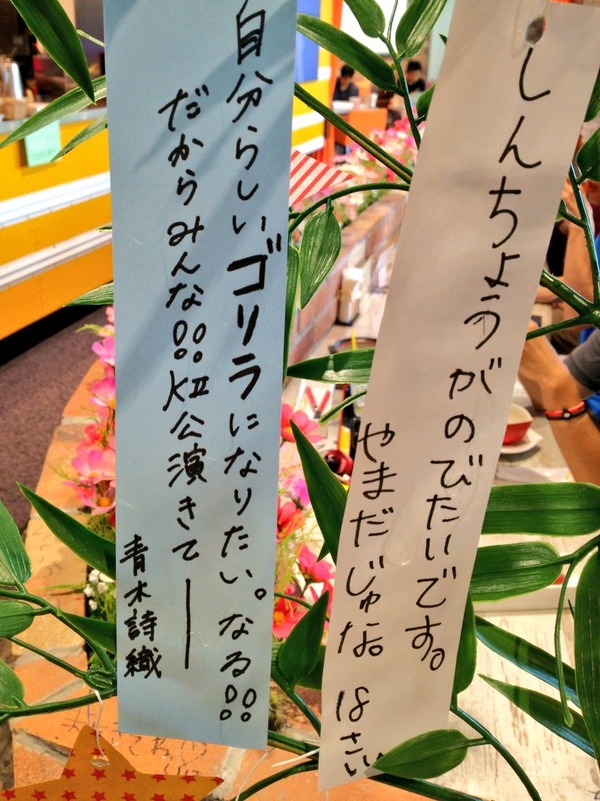 しんちょうがのびたいです。
やまだじゅな 18さい
自分らしいゴリラになりたい。なる!!
だからみんな!!KⅡ公演きてー
青木詩織